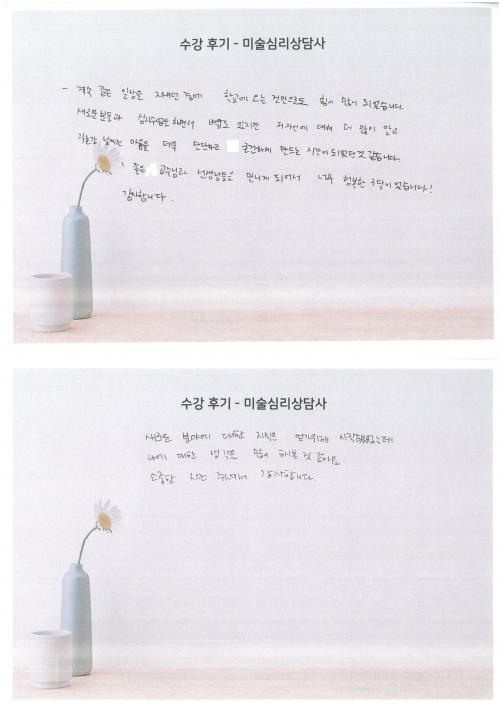 수강 후기 - 미술심리상담사
- 계속 같은 일상을 지내던 중에 학교에 오는 것만으로도 힘이 많이 되었습니다.
새로운 분들과 심리수업을 하면서 배움도 있지만 저 자신에 대해 더 많이 알고
마음을 더욱 단단하고 굳건하게 만드는 시간이 되었던 것 같습니다.
좋은 교수님과 선생님들을 만나게 되어서 너무 행복한 3달이었습니다!
감사합니다.
수강 후기 - 미술심리상담사
새로운 분야에 대한 지식을 얻기위해 시작했는데
나에 대한 생각을 많이 해본 것 같아요
소중한 시간 주셔서 감사합니다.